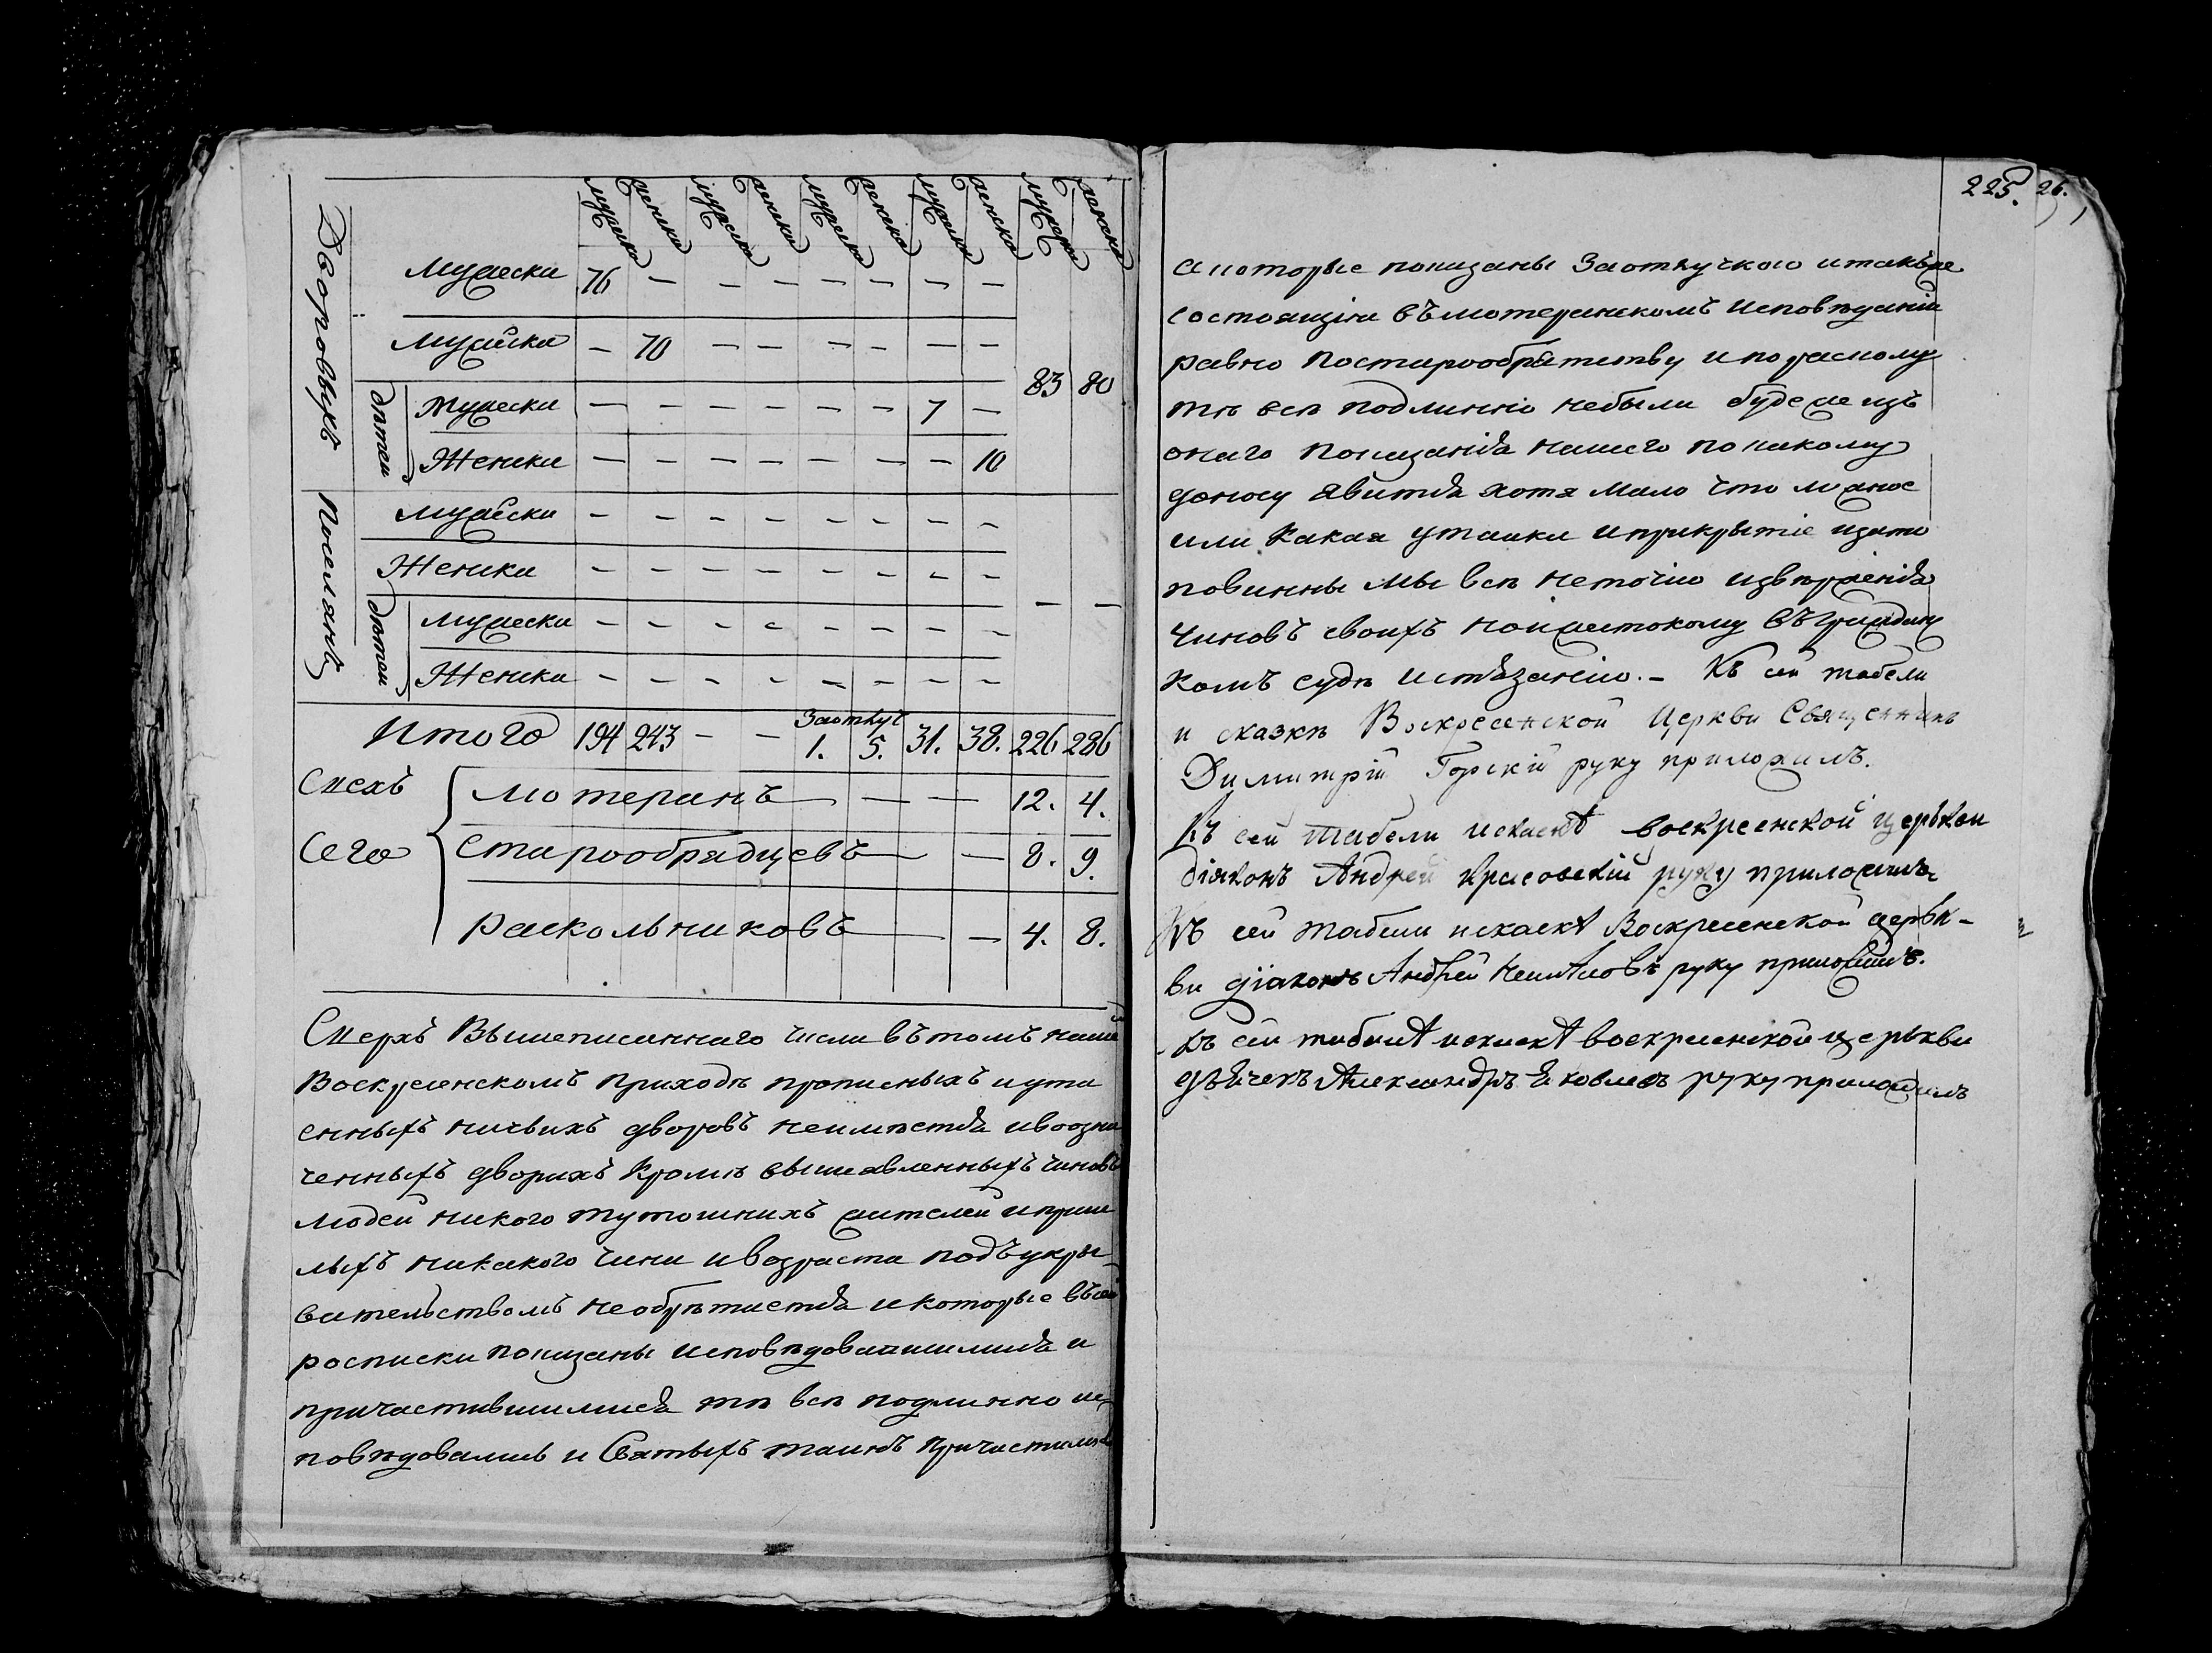 мужска женска мужска женска мужска женска мужска женска мужска женска
Дворовыхъ
Мужеска 76 — — — — — — —
Мужеска — 70 — — — — — —
83 80
дѣтеи
Мужеска — — — — — — 7 —
Женска — — — — — — — 10
Поселянъ
Мужеска — — — — — — — —
Женска — — — — — — — —
— —
дѣтеи
Мужеска — — — — — — — —
Женска — — — — — — — —
Заотлуч
Итого 194 243 — — 1. 5. 31. 38. 226 286
Сверхъ
Сего
Лютеранъ — — — 12. 4.
Старообрядцевъ — — 8. 9.
Раскольниковъ — — 4. 8.
Сверхъ Вышеписаннаго числа вътомъ наше
Воскресенскомъ приходѣ прописныхъ иута
енныхъ ничьихъ дворовъ неимѣется ивоозна
ченныхъ дворахъ Кромѣ вышеявленныхъ чиновъ
людей никого тутошнихъ жителей ипришѣ
лыхъ никакого чина ивозраста подъукры-
вательствомъ необрѣтается икоторые въсей
росписки показаны исповѣдовавшимися и
причастившимися тѣ всѣ подлинно ис-
повѣдовались и Святыхъ таинъ Причастились
225. 26.
акоторые показаны Заотлучкою итакъже
состоящiи въЛютеранскомъ исповѣданiи
равно постарообрятству ипорасколу
тѣ всѣ подлиннo небыли будеже изъ
онаго показанiя нашего покакому
доносу явится хотя мало что ложное
или Какая утаика иприкрытiе изато
повинны мы всѣ неточiю извѣрженiя
чиновъ своихъ ноижестокому въГраждан
комъ судѣ истязанiю.- Къ сей табели
и сказкѣ Воскресенской Церкви Священникъ
Димитрiй Горскiй руку приложилъ.
Къ сей табели искаскѣ воскресенской церкви
дiяконъ Андрей Красовскiй руку приложилъ
Къ сей табели искаскѣ Воскресенской церьк-
ви дiаконъ Андрей руку приложилъ.
Къ сей табелѣ искаскѣ воскресенской церькви
дьячекъ Александръ Яковлевъ руку приложилъ